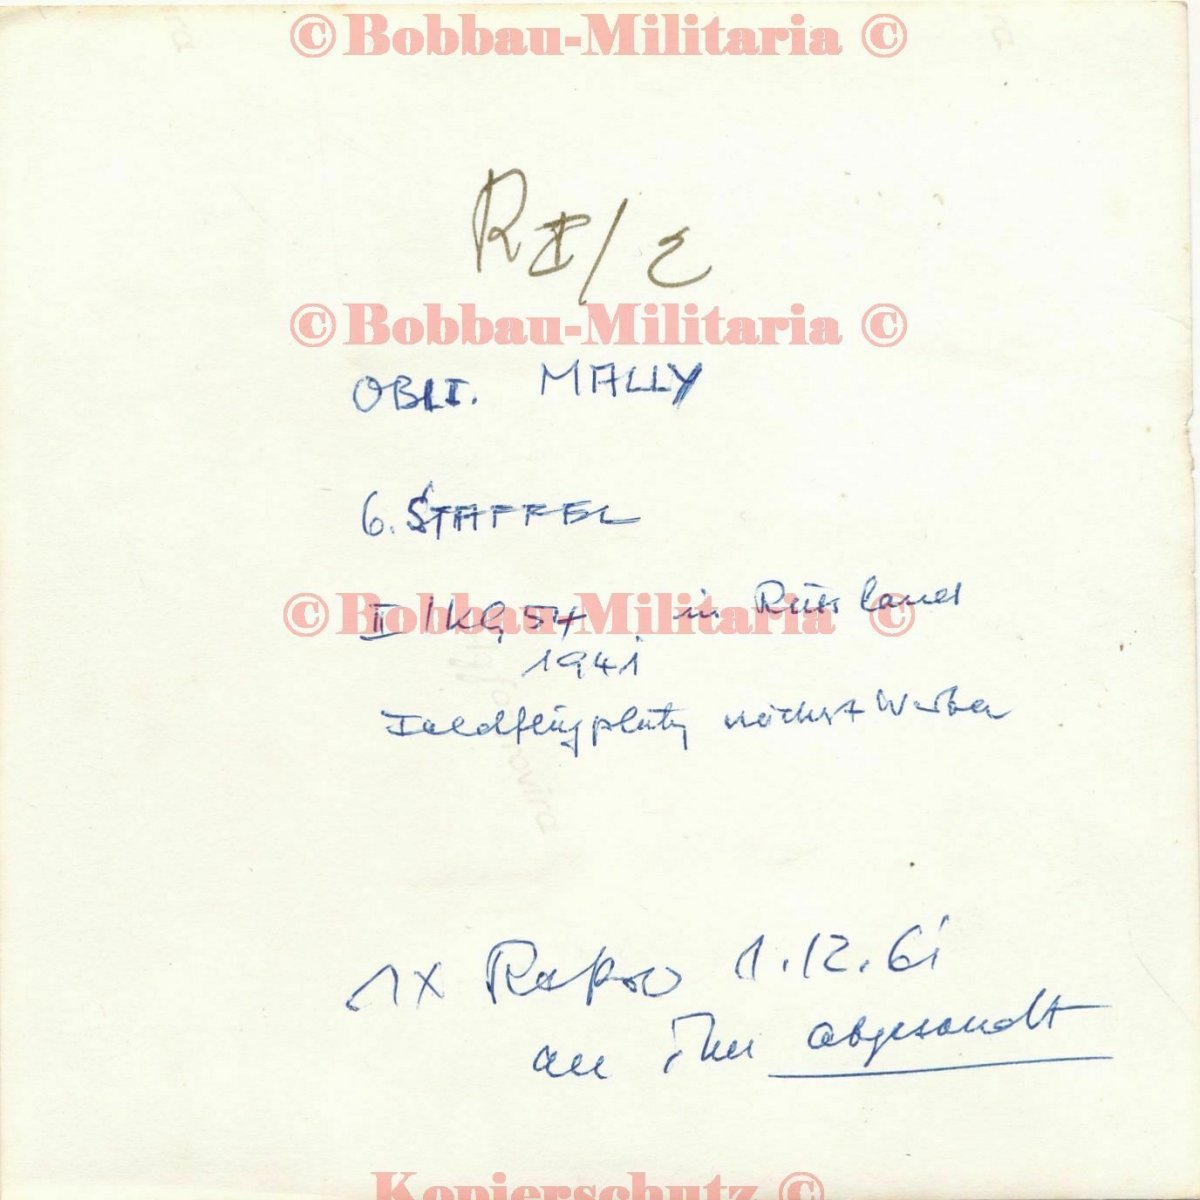 ©Bobbau-Militaria ©
R II/2
©Bobbau-Militaria ©
OBLT. MALLY
6. STAFFEL
©Bobbau-Militaria ©
II/KG 54 in Rußland
1941
Feldflugplatz nächst
1X Repro 1.12.61
an ihn abgesandt
Kopierschutz ©